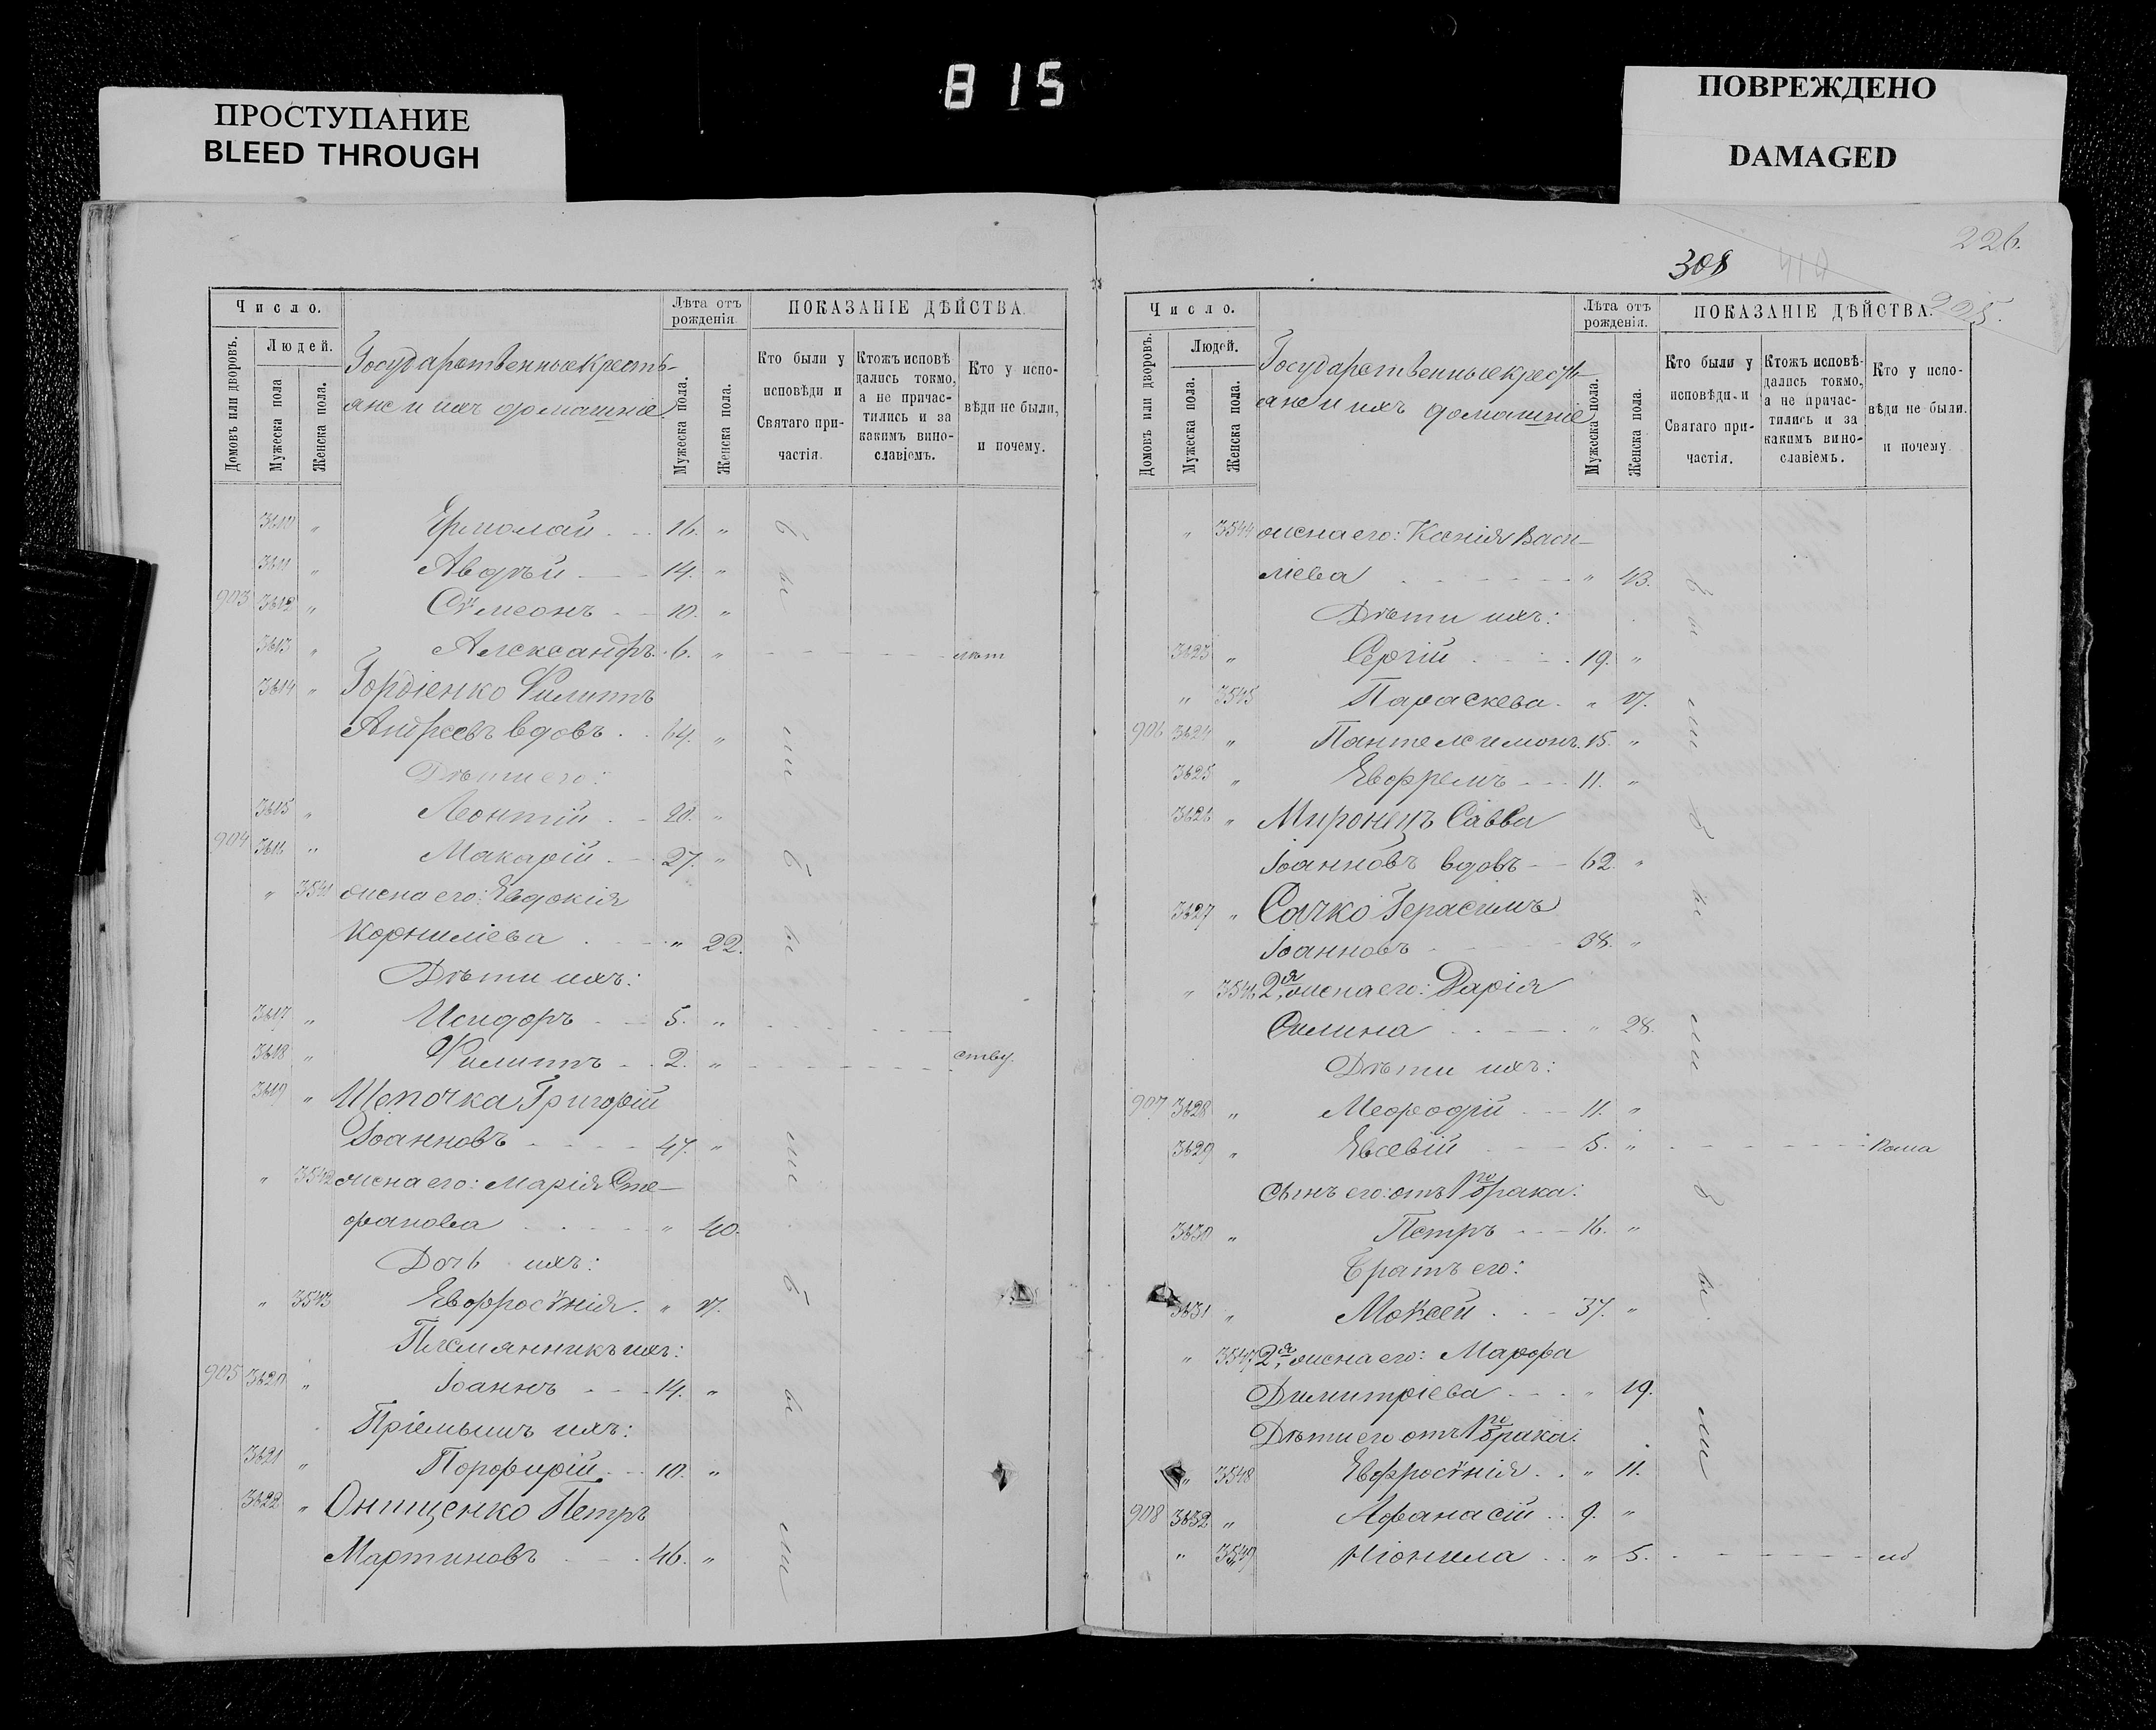 815
ПРОСТУПАНИЕ
BLEED THROUGH
ПОВРЕЖДЕНО
DAMAGED
Число.
Лѣта отъ рожденія.
ПОКАЗАНІЕ ДѢЙСТВА.
Домовъ или дворовъ.
Людей.
Мужеска пола
Женска пола.
Государственные кресть-
яне и ихъ домашніе
Мужеска пола.
Женска пола.
Кто были у исповѣди и Святаго при-частія.
Ктожъ исповѣ-дались токмо, а не причас-тились и за какимъ вино-славіемъ.
Кто у испо-вѣди не были, и почему.
3610 " Ермолай 16. "
3611 " Авдѣй 14. "
903 3612 " Сѵмеонъ 10. "
3613 " Александръ 6. " лѣт
3614 " Гордіенко Филиппъ
Андреевъ вдовъ 64. "
Дѣти его:
3615 " Леонтій 20. "
904 3616 " Макарій 27. "
" 3541 жена его: Евдокія
Корниліева " 22.
Дѣти ихъ:
3617 " Исидоръ 5. "
3618 " Филиппъ 2. " ству.
3619 " Щепочка Григорій
Іоанновъ 47. "
" 3542 жена его: Марія Сте-
фанова " 40.
Дочь ихъ:
" 3543 Евфросѵнія " 17.
Племянникъ ихъ:
905 3620 " Іоаннъ 14. "
Пріемышъ ихъ:
3621 " Порфирій 10. "
3622 " Онищенко Петръ
Мартиновъ 46. "
были
были
были
308
226.
225.
Число.
Лѣта отъ рожденія.
ПОКАЗАНІЕ ДѢЙСТВА.
Домовъ или дворовъ.
Людей.
Мужеска пола.
Женска пола.
Государственные кресть-
яне и ихъ домашніе
Мужеска пола.
Женска пола.
Кто были у исповѣди и Святаго при-частія.
Ктожъ исповѣ-дались токмо, а не причас-тились и за какимъ вино-славіемъ.
Кто у испо-вѣди не были, и почему.
" 3544 жена его: Ксенія Васи-
ліева " 43.
Дѣти ихъ:
3623 " Сергій 19. "
" 3545 Параскева " 17.
906 3624 " Пантелеимонъ 15. "
3625 " Евфремъ 11. "
3626 " Миронецъ Савва
Іоанновъ вдовъ 62. "
3627 " Сачко Герасимъ
Іоанновъ 38. "
" 3546 2я жена его: Дарія
Силина " 28.
Дѣти ихъ:
907 3628 " Меѳодій 11. "
3629 " Евсевій 5. " Пома
сынъ его: отъ 1го брака:
3630 " Петръ 16. "
Братъ его:
3631 " Моѵсей 37. "
" 3547 2я жена его: Марфа
Димитріева " 19.
Дѣти его отъ 1го брака:
" 3548 Евфросѵнія " 11.
908 3632 " Афанасій 9. "
" 3549 Ніонила " 5.
были
были
были